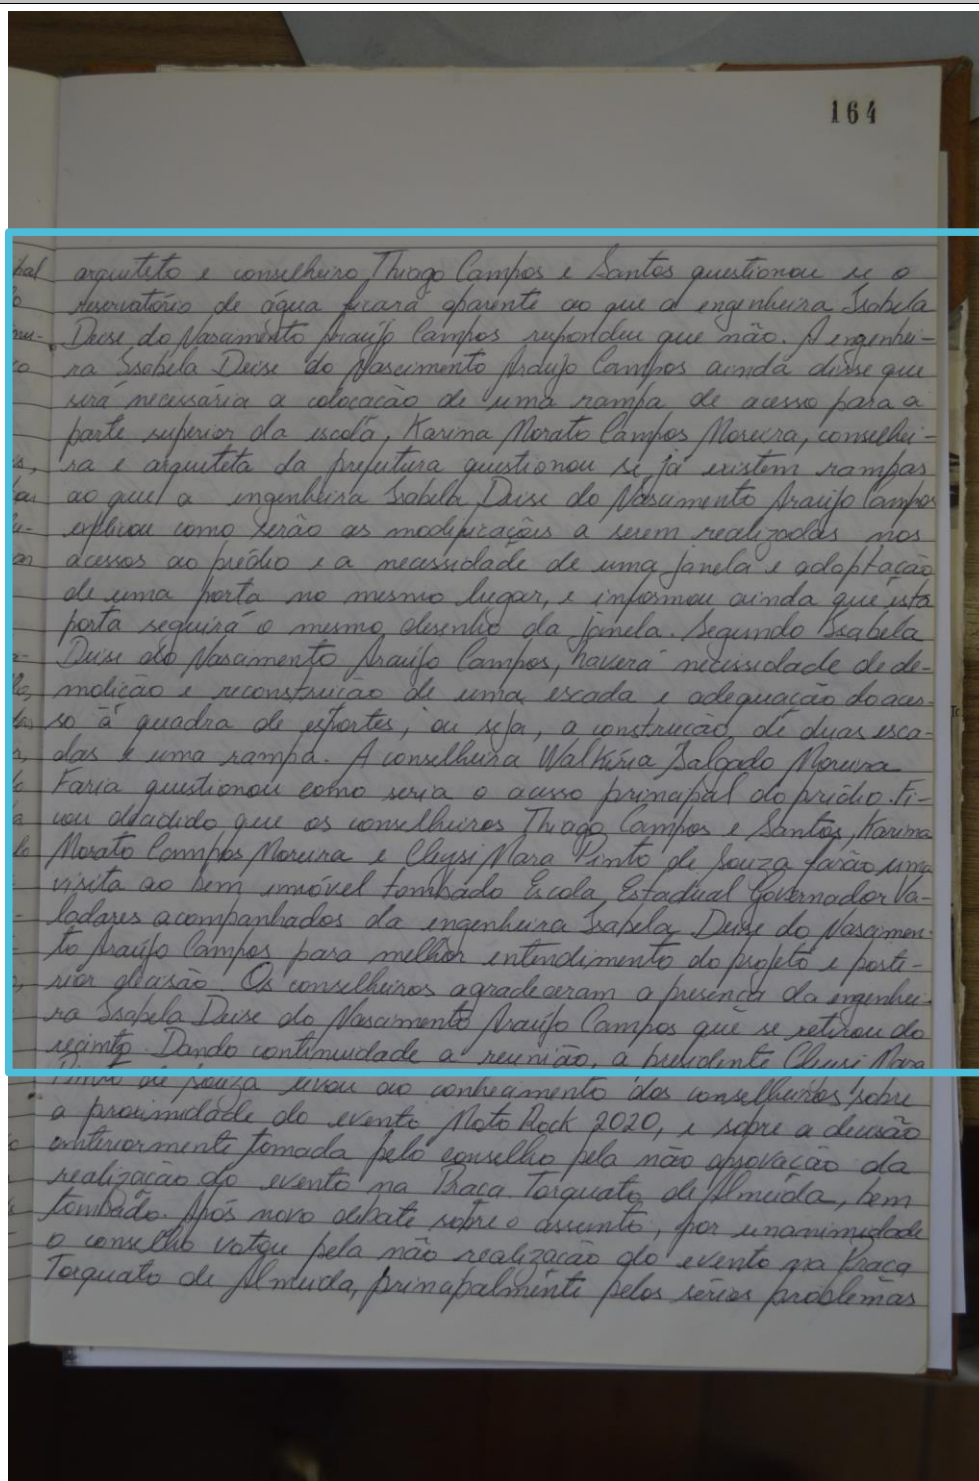 164
arquiteto e conselheiro Thiago Campos e Santos questionou se o
reservatório de água ficará aparente ao que a engenheira Isabela
Deise do Nascimento Araújo Campos respondeu que não. A engenhei-
ra Isabela Deise do Nascimento Araújo Campos ainda disse que
será necessária a colocação de uma rampa de acesso para a
parte superior da escola, Karina Morato Campos Moreira, conselhei-
ra e arquiteta da prefeitura questionou se já existem rampas
ao que a engenheira Isabela Deise do Nascimento Araújo Campos
explicou como serão as modificações a serem realizadas nos
acessos ao prédio e a necessidade de uma janela e adaptação
de uma porta no mesmo lugar, e informou ainda que esta
porta seguirá o mesmo desenho da janela. Segundo Isabela
Deise do Nascimento Araújo Campos, haverá necessidade de de-
molição e reconstrução de uma escada e adequação do aces-
so à quadra de esportes, ou seja, a construção de duas esca-
das e uma rampa. A conselheira Walkíria Salgado Moreira
Faria questionou como seria o acesso principal do prédio. Fi-
cou decidido que os conselheiros Thiago Campos e Santos, Karina
Morato Campos Moreira e Cleysi Mara Pinto de Souza farão uma
visita ao bem imóvel tombado Escola Estadual Governador Va-
ladares acompanhados da engenheira Isabela Deise do Nascimen-
to Araújo Campos para melhor entendimento do projeto e poste-
rior decisão. Os conselheiros agradeceram a presença da engenhei-
ra Isabela Deise do Nascimento Araújo Campos que se retirou do
recinto. Dando continuidade a reunião, a presidente Cleysi Mara
Pinto de Souza levou ao conhecimento dos conselheiros sobre
a proximidade do evento Moto Rock 2020, e sobre a decisão
anteriormente tomada pelo conselho pela não aprovação da
realização do evento na Praça Torquato de Almeida, bem
tombado. Após novo debate sobre o assunto, por unanimidade
o conselho votou pela não realização do evento na Praça
Torquato de Almeida, principalmente pelos sérios problemas